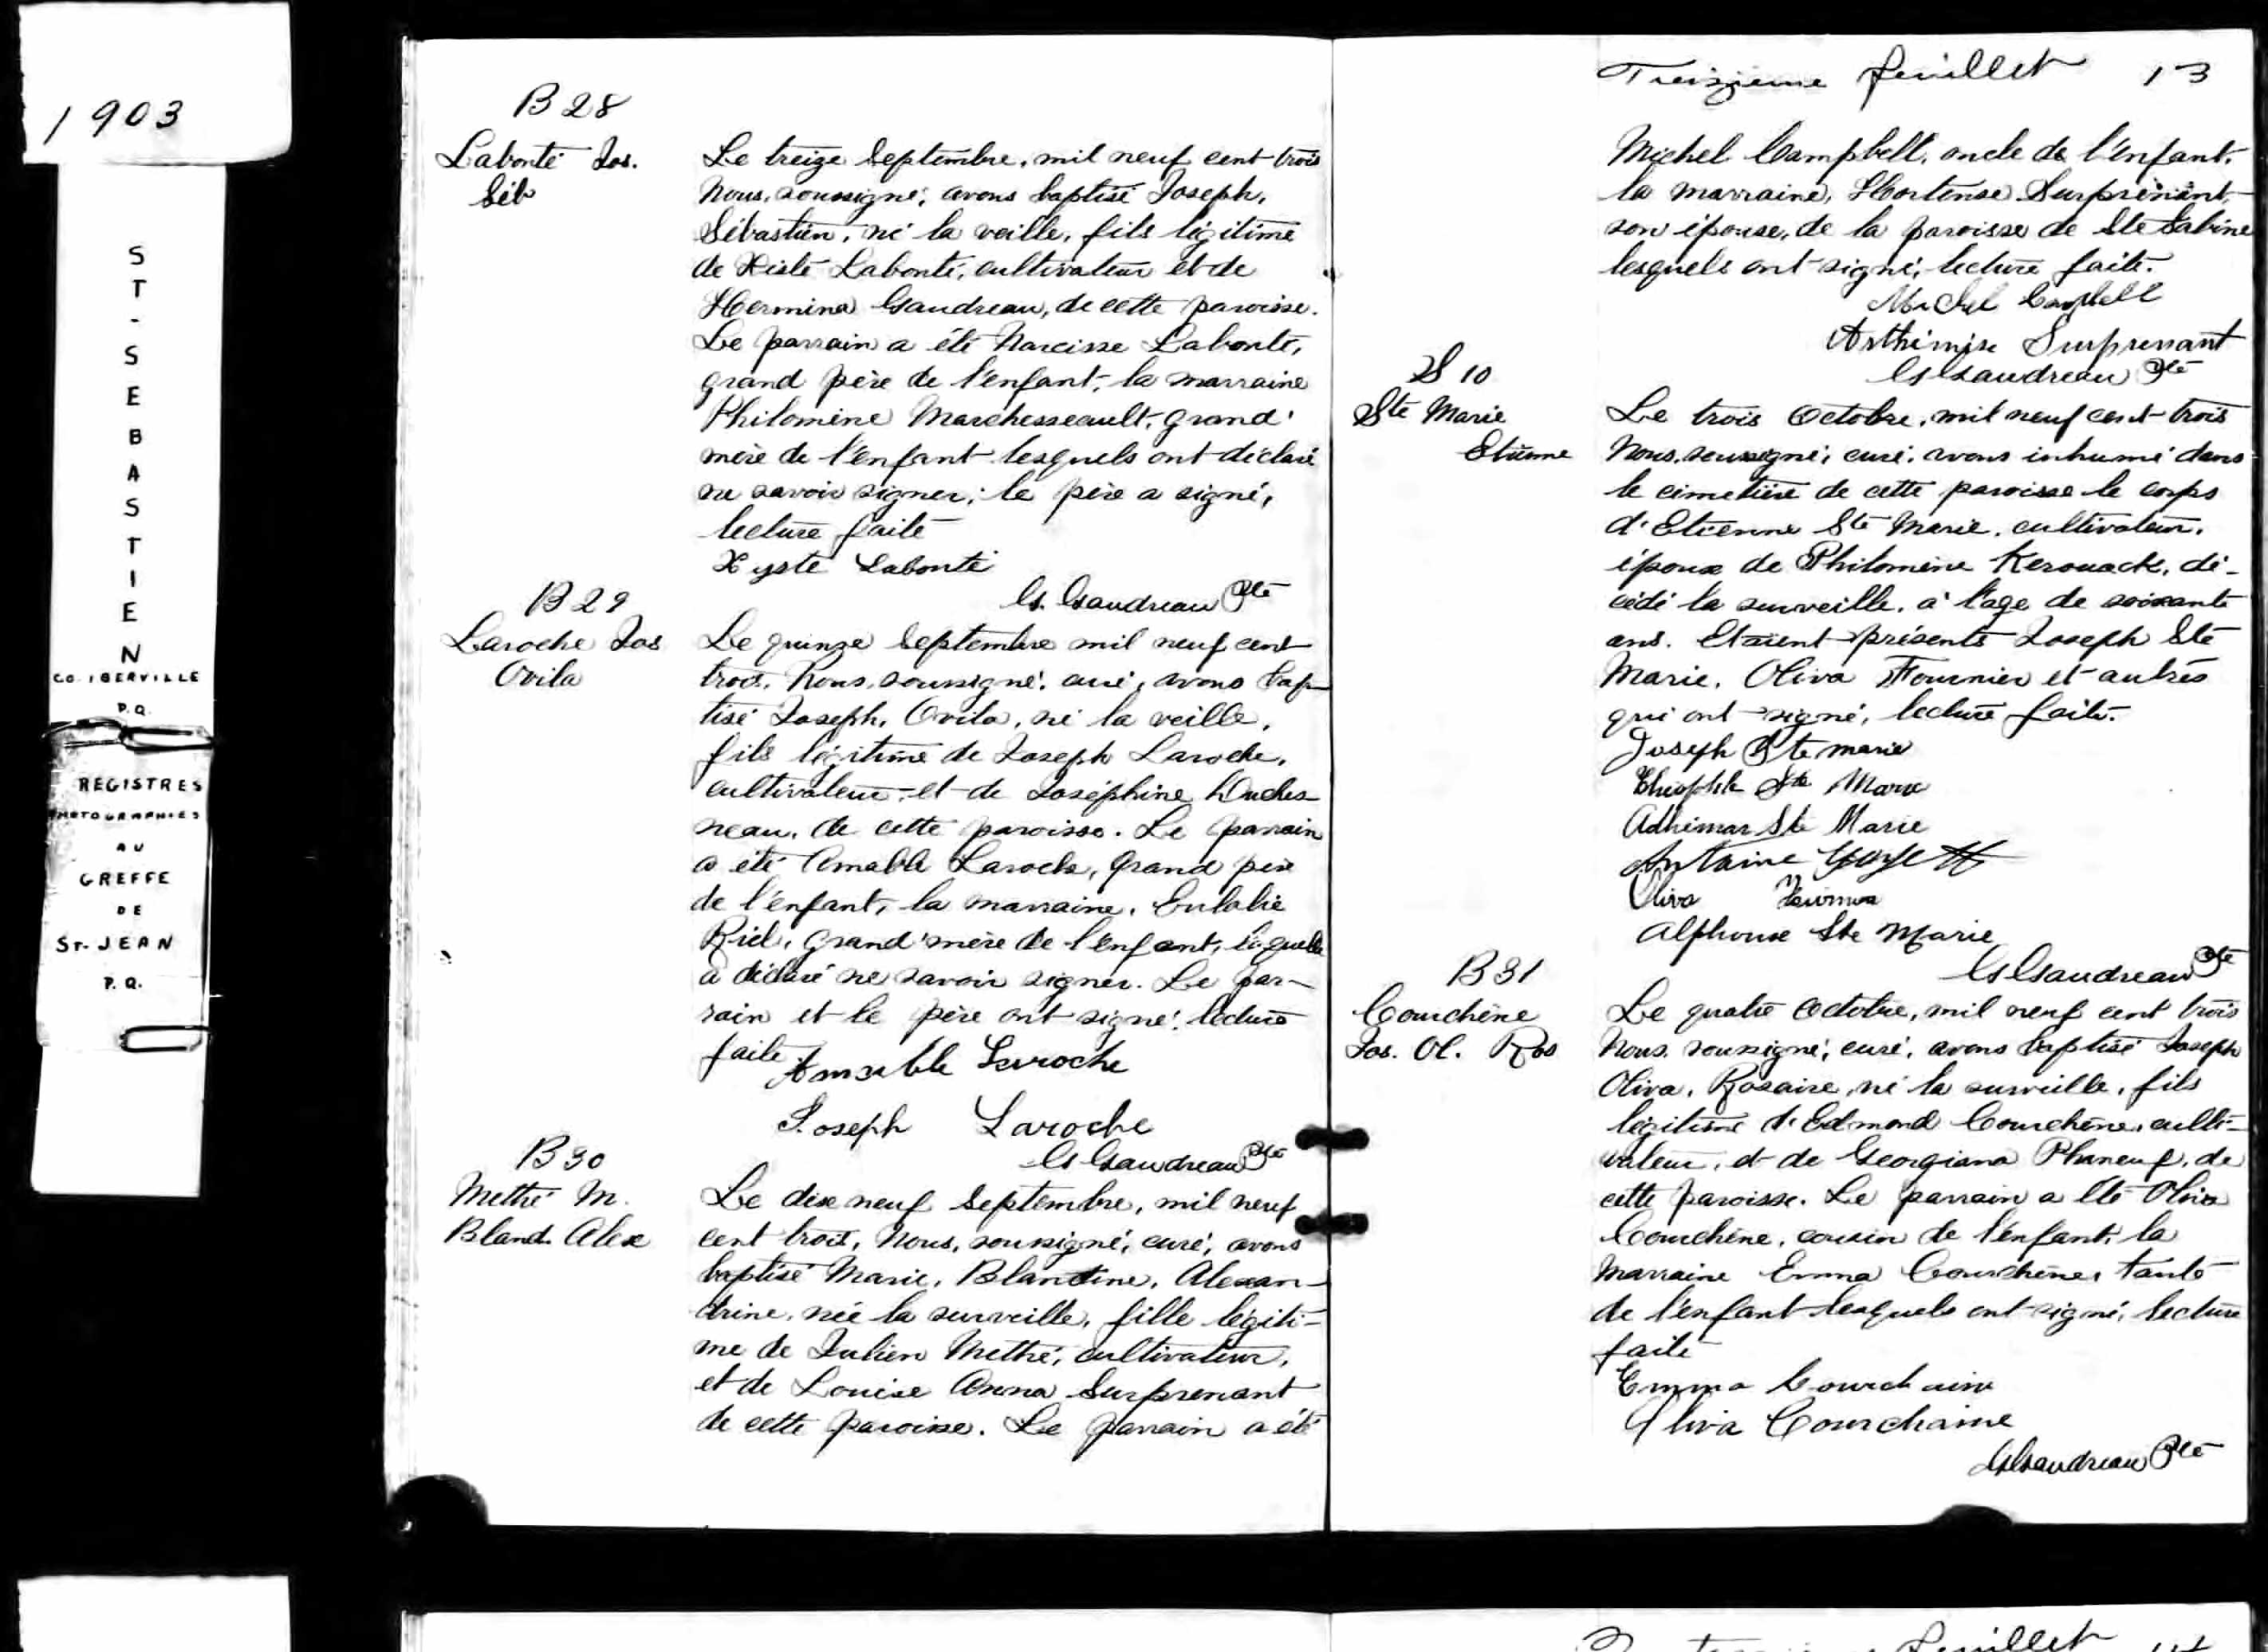 1903
ST-SEBASTIEN
CO. IBERVILLE
P.Q.
REGISTRES
PHOTOGRAPHIES
AU
GREFFE
DE
ST. JEAN
P.Q.
B 28
Labonté Jos.
Séb
Le treize Septembre, mil neuf cent trois
Nous, soussigné, avons baptisé Joseph,
Sébastien, né la veille, fils légitime
de Xiste Labonté, cultivateur et de
Hermina Gaudreau, de cette paroisse.
Le parrain a été Narcisse Labonté,
grand père de l'enfant, la marraine
Philomène Marchesseault, grand'
mère de l'enfant lesquels ont déclaré
ne savoir signer; le père a signé,
lecture faite
Xyste Labonté
Gs. Gaudreau Ptre
B 29
Laroche Jos
Ovila
Le quinze Septembre mil neuf cent
trois, Nous, soussigné, curé, avons bap-
tisé Joseph, Ovila, né la veille,
fils légitime de Joseph Laroche,
cultivateur, et de Joséphine Duches-
neau, de cette paroisse. Le parrain
a été Amable Laroche, grand père
de l'enfant, la marraine, Eulalie
Riel, grand'mère de l'enfant, laquelle
a déclaré ne savoir signer. Le par-
rain et le père ont signé, lecture
faite.
Amable Laroche
Joseph Laroche
Gs Gaudreau Ptre
B 30
Methé M.
Bland. Alex
Le dix neuf Septembre, mil neuf
cent trois, Nous, soussigné, curé, avons
baptisé Marie, Blandine, Alexan-
drine, née la surveille, fille légiti-
me de Julien Methé, cultivateur,
et de Louise Anna Surprenant
de cette paroisse. Le parrain a été
Treizième feuillet 13
Michel Campbell, oncle de l'enfant,
la marraine, Hortense Surprenant,
son épouse, de la paroisse de Ste Sabine
lesquels ont signé, lecture faite.
Michel Campbell
Arthimise Surprenant
Gs Gaudreau Ptre
S 10
Ste Marie
Etienne
Le trois Octobre, mil neuf cent trois
Nous, soussigné, curé, avons inhumé dans
le cimetière de cette paroisse le corps
d'Etienne Ste Marie, cultivateur,
époux de Philomène Kerouack, dé-
cédé la surveille, à l'age de soixante
ans. Etaient présents Joseph Ste
Marie, Oliva Fournier et autres
qui ont signé, lecture faite.
Joseph Ste marie
Théophile Ste Marie
Adhémar Ste Marie
Antoine
Oliva
Alphonse Ste Marie
Gs Gaudreau Ptre
B 31
Courchêne
Jos. Ol. Ros
Le quatre Octobre, mil neuf cent trois
Nous, soussigné, curé, avons baptisé Joseph
Oliva, Rosaire, né la surveille, fils
légitime d'Edmond Courchêne, culti-
vateur, et de Georgiana Phaneuf, de
cette paroisse. Le parrain a été Oliva
Courchêne, cousin de l'enfant, la
marraine Emma Courchêne, tante
de l'enfant lesquels ont signé, lecture
faite
Emma Courchaine
Oliva Courchaine
Gs Gaudreau Ptre
feuillet